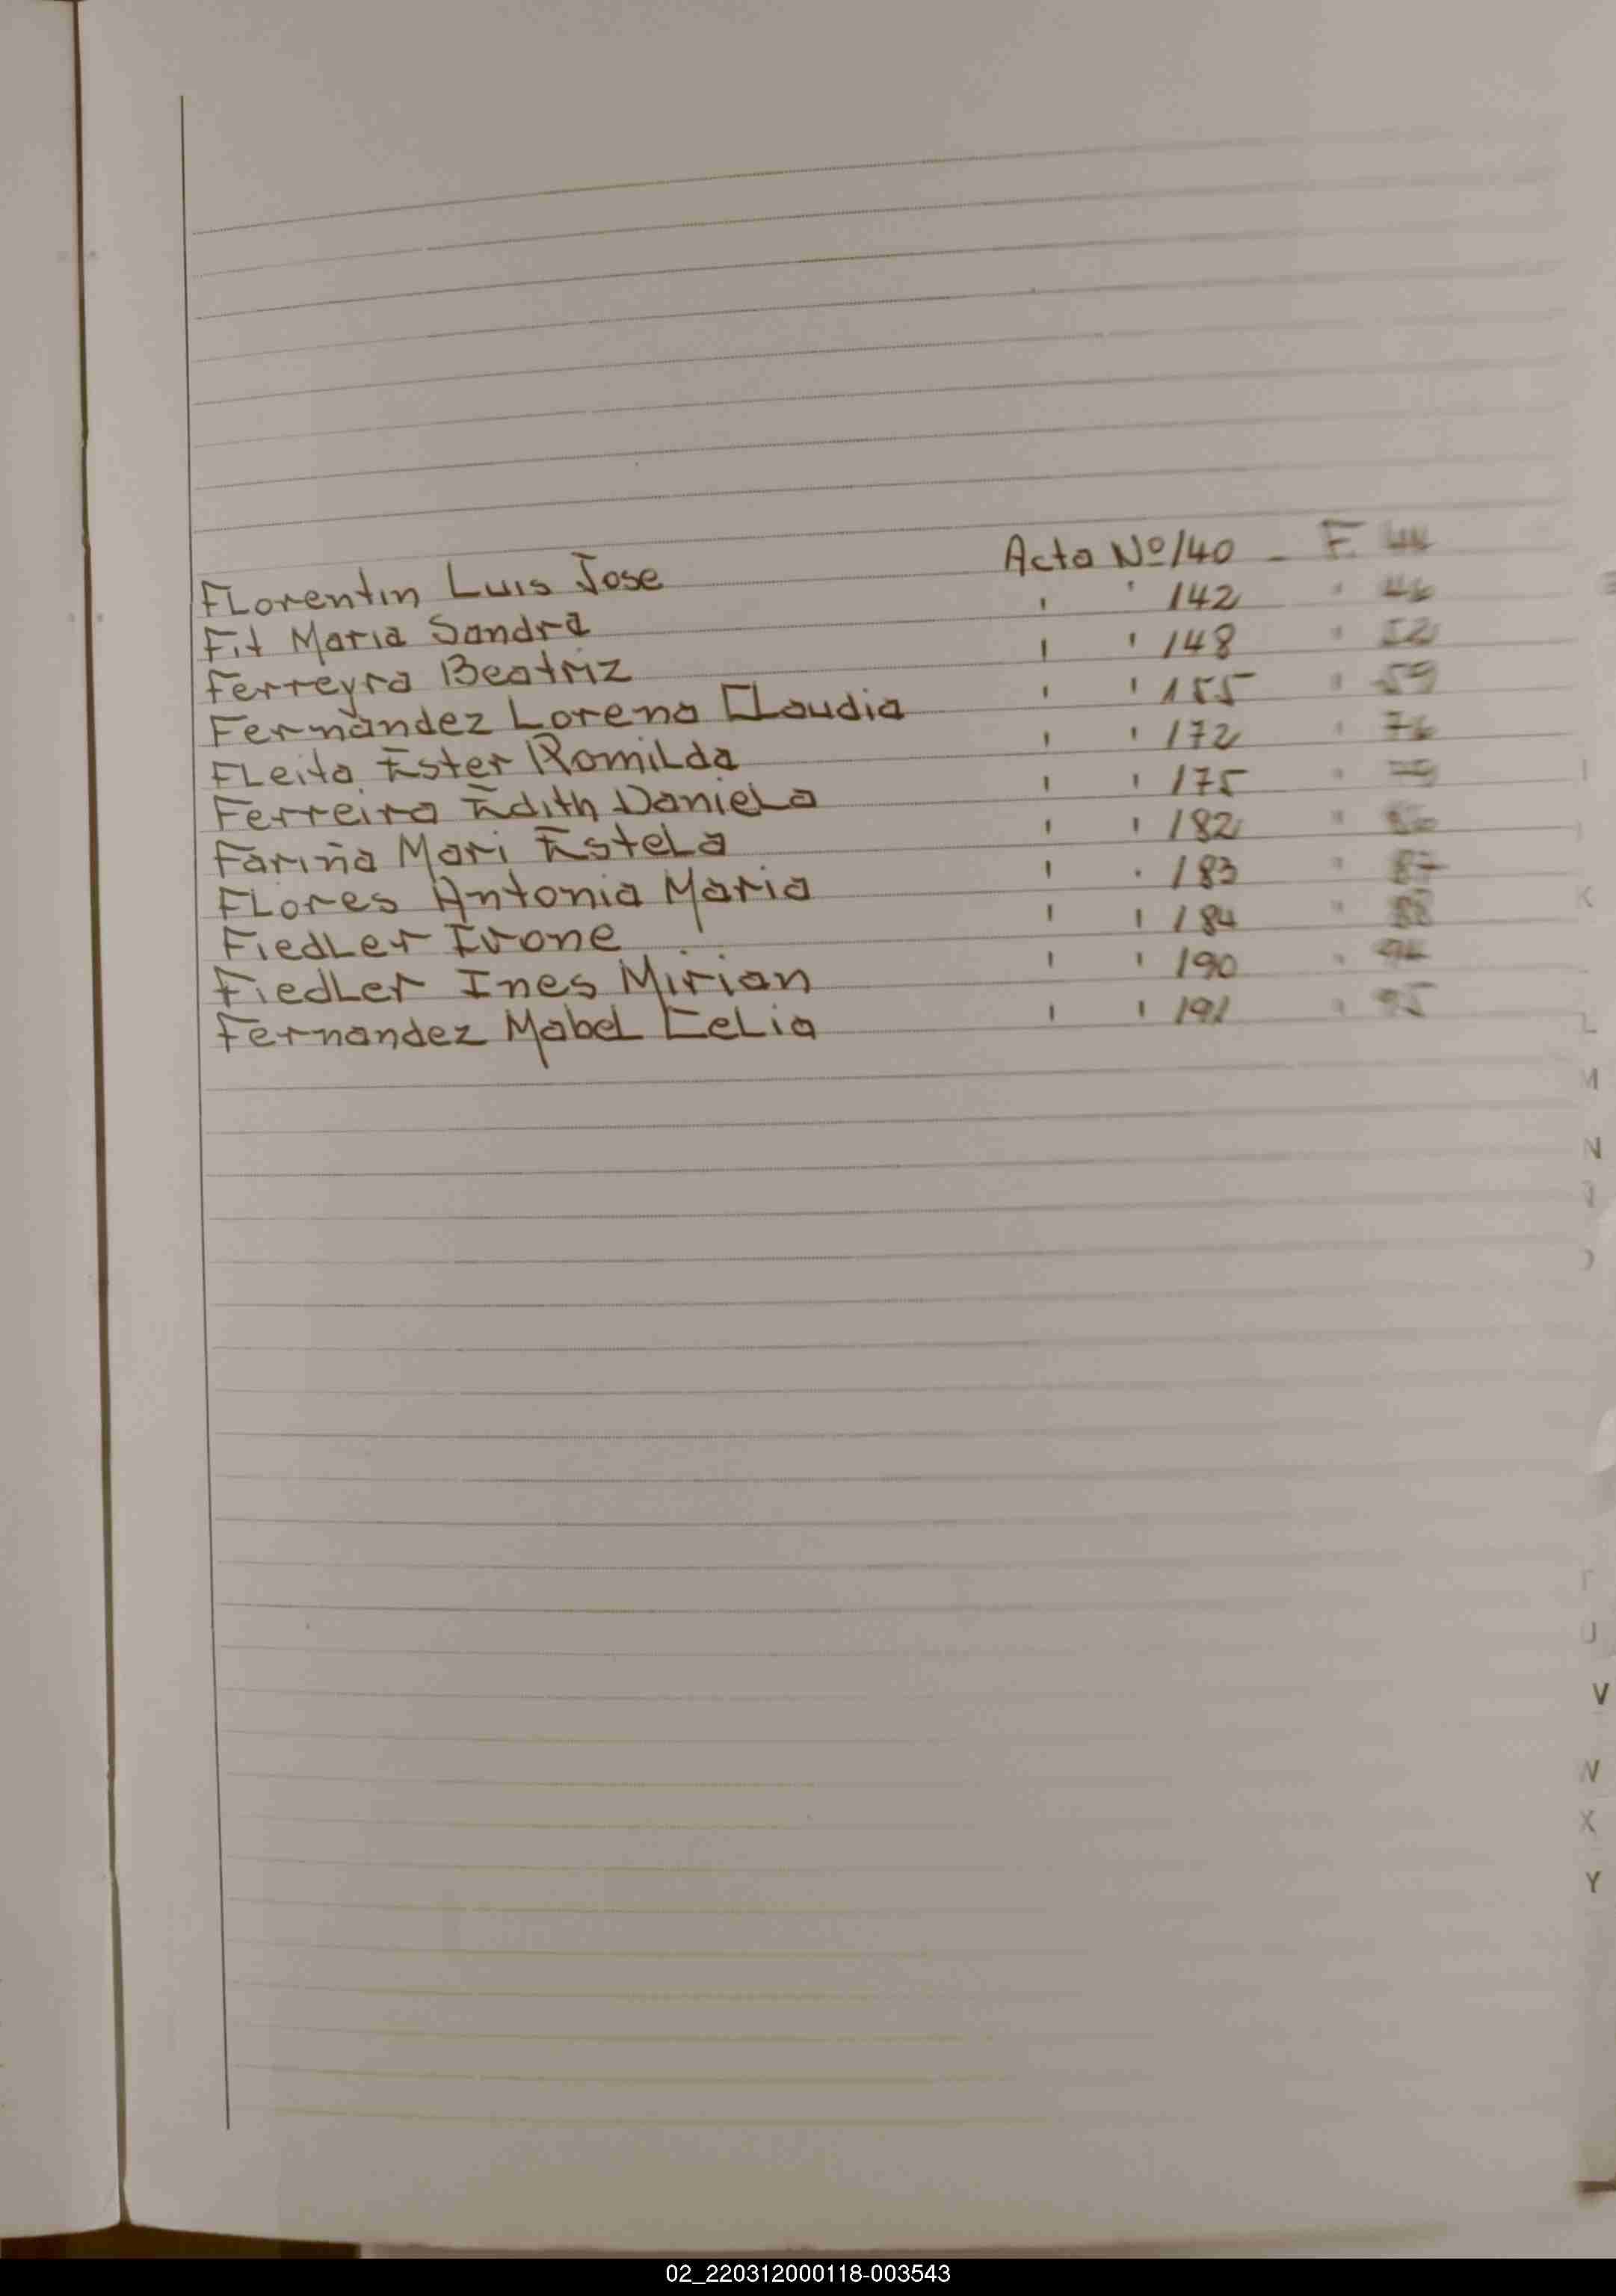 Florentin Luis Jose Acta Nº 140 - F. 44
Fit Maria Sandra " " 142 " 46
Ferreyra Beatriz " " 148 " 52
Fernàndez Lorena Claudia " " 155 " 59
Fleita Ester Romilda " " 172 " 76
Ferreira Edith Daniela " " 175 " 79
Fariña Mari Estela " " 182 " 86
Flores Antonia Maria " " 183 " 87
Fiedler Ivone " " 184 " 88
Fiedler Ines Mirian " " 190 " 94
Fernandez Mabel Celia " " 191 " 95
K
L
M
N
U
V
X
Y
02_220312000118-003543